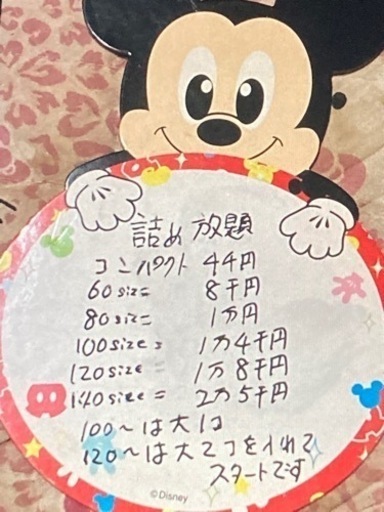 詰め放題
コンパクト 44円
60size= 8千円
80size= 1万円
100size= 1万4千円
120size= 1万8千円
140size= 2万5千円
100〜は大1コ
120〜は大2コを入れて
スタートです
©Disney